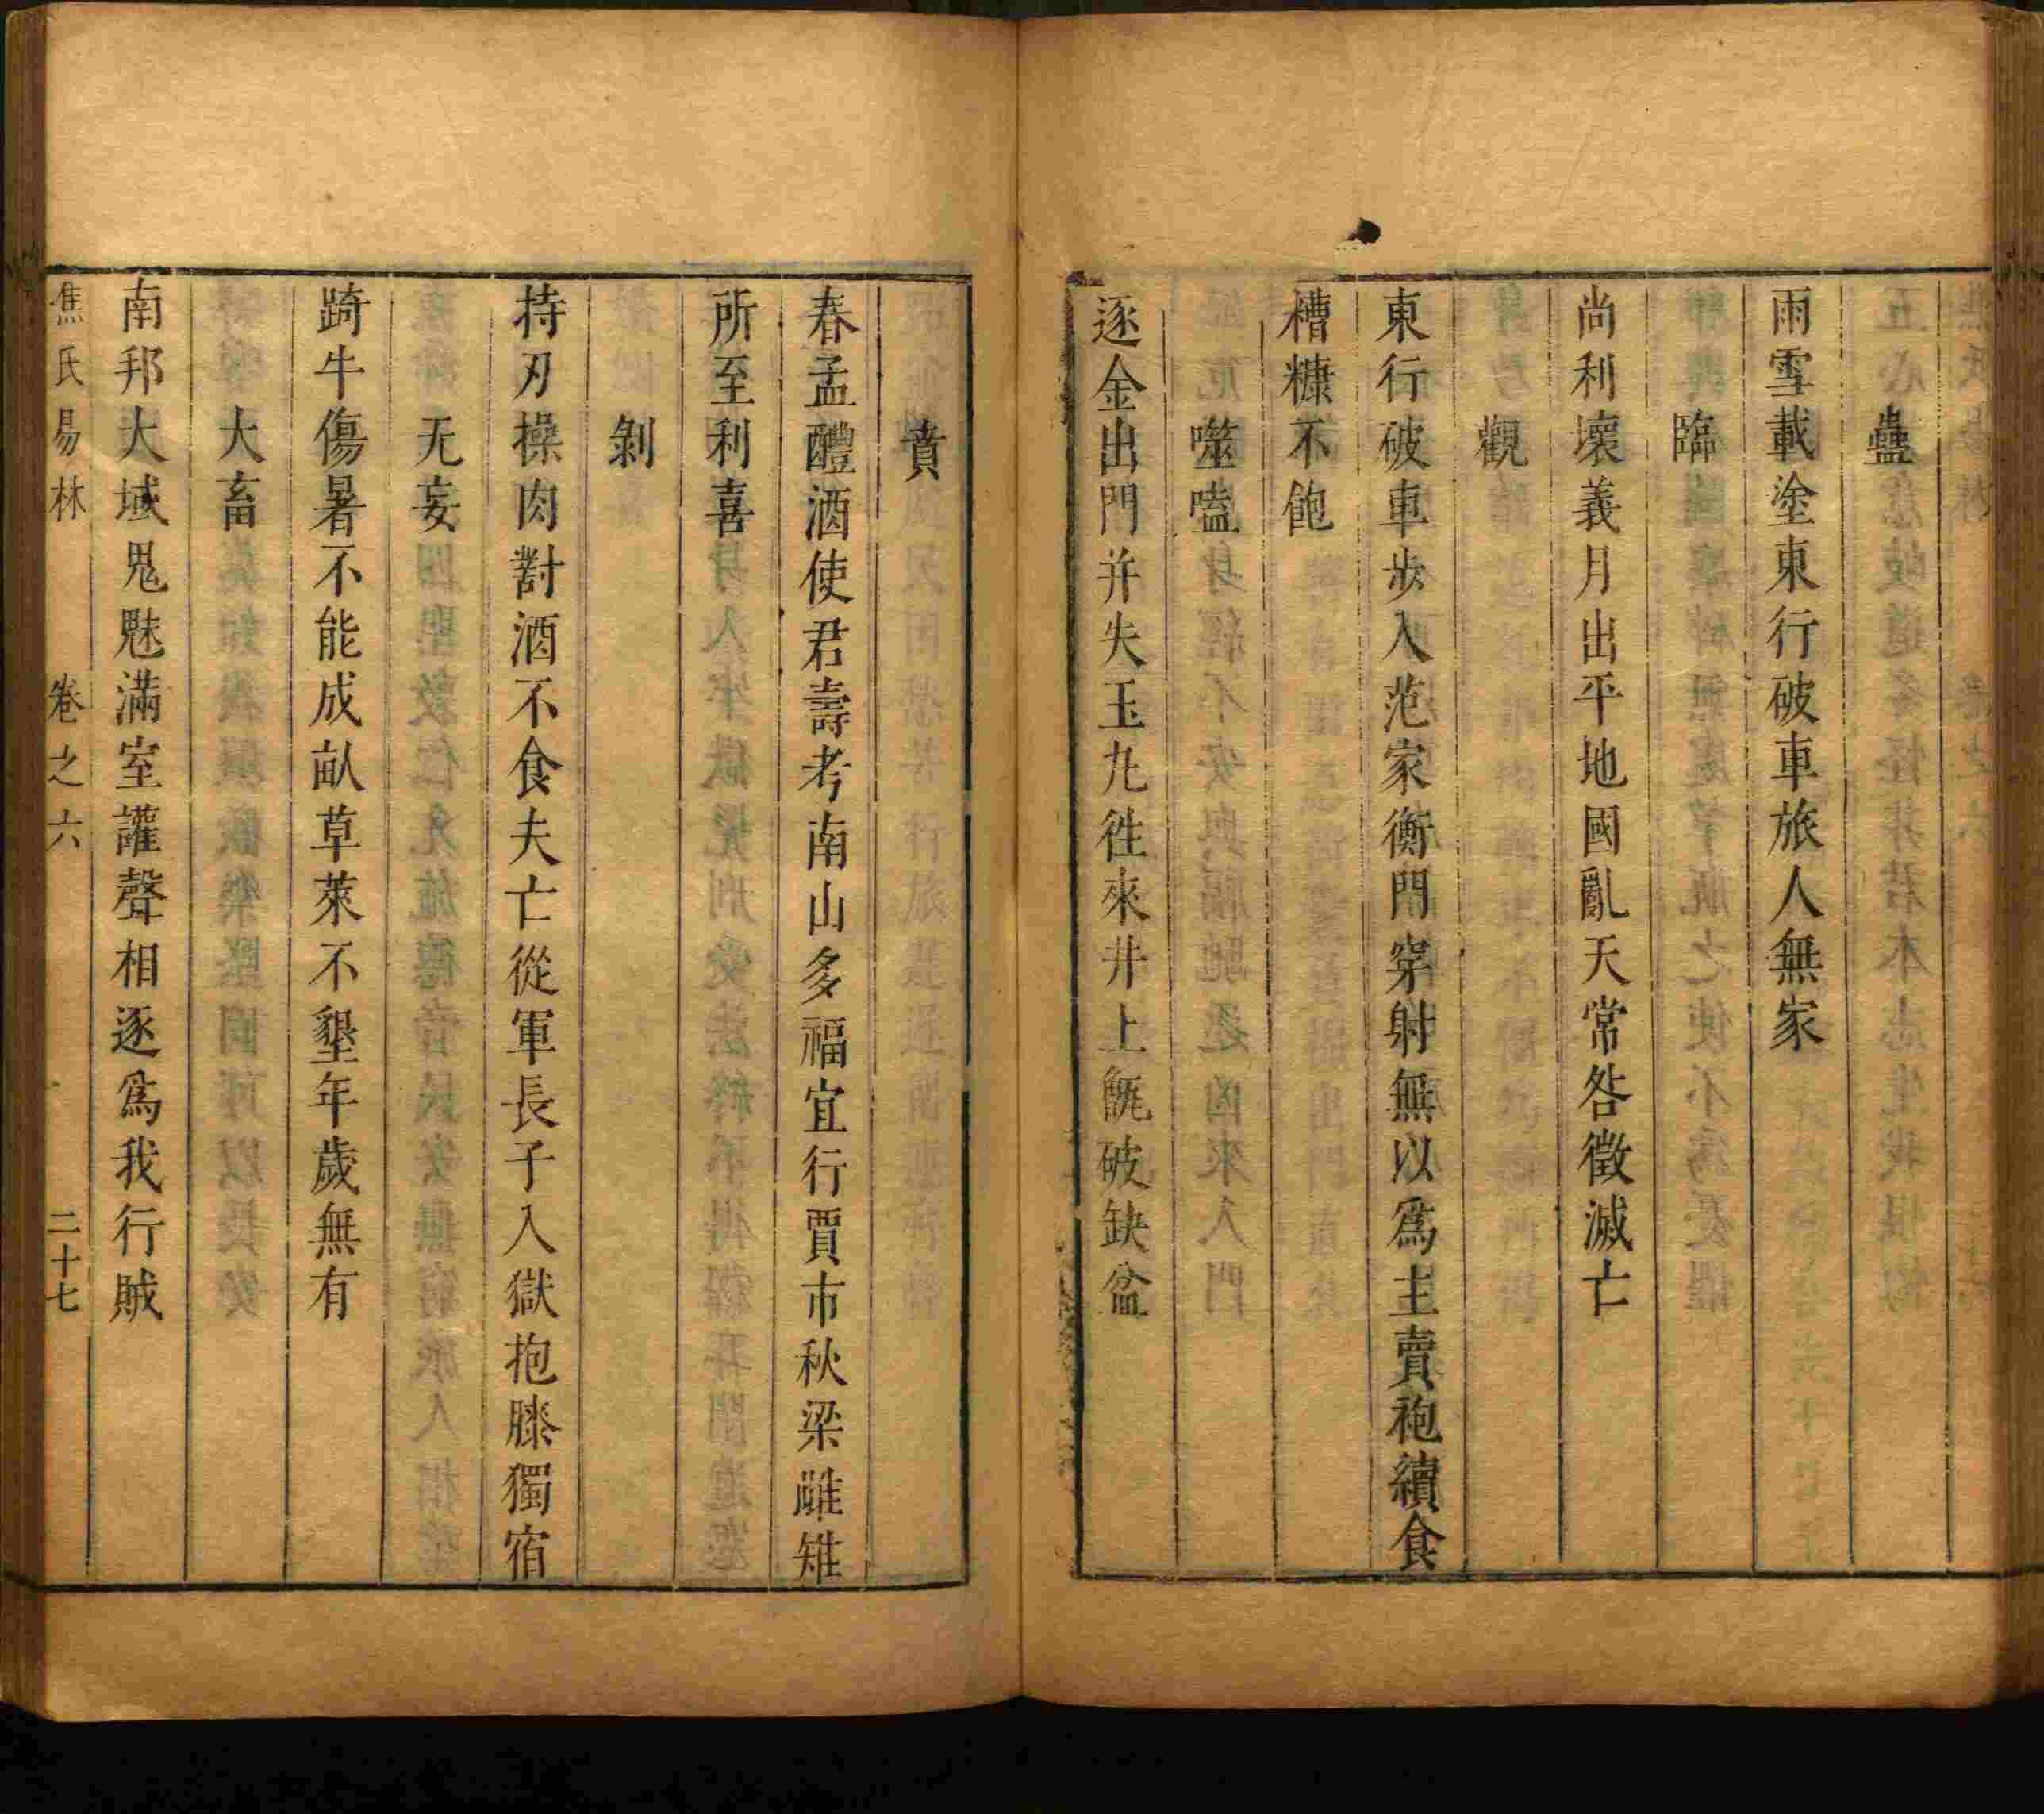 蠱
雨雪載塗東行破車旅人無家
臨
尚利壞義月出平地國亂天常咎徵滅亡
觀
東行破車步入范家衡門穿射無以爲主賣袍續食
糟糠不飽
噬嗑
逐金出門并失玉丸徃來井上甑破缺盆
賁
春孟醴酒使君壽考南山多福宜行賈市秋梁雌雉
所至利喜
剝
持刃操肉對酒不食夫亡從軍長子入獄抱膝獨宿
无妄
踦牛傷暑不能成畝草萊不墾年歲無有
大畜
南邦大域鬼魅滿室讙聲相逐爲我行賊
焦氏易林 卷之六 二十七